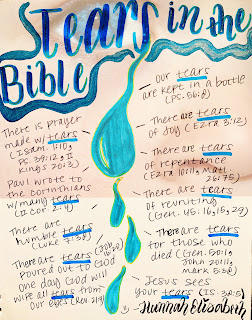 Tears in the
Bible
our tears
are kept in a bottle
(Ps. 56:8)
There is prayer
made w/ tears
(I Sam. 1:10,
Ps. 39:12, II
Kings 20:5)
There are tears
of Joy (Ezra 3:12)
There are tears
of repentance
(Ezra 10:1, Mat.
26:75)
Paul wrote to
the Corinthians
w/ many tears
(II Cor. 2:4)
There are tears
of reuniting
(Gen. 45:14, 15, 29)
There are
humble tears
(Luke 7:38)
There are tears
for those who
died (Gen. 50:1,
John 20:11,
Mark 5:38)
There are tears
poured out to God
one day God will
wipe all tears from
our eyes (Rev. 21:4)
Jesus sees
your tears (Is. 38:5)
Hannah Elisabeth